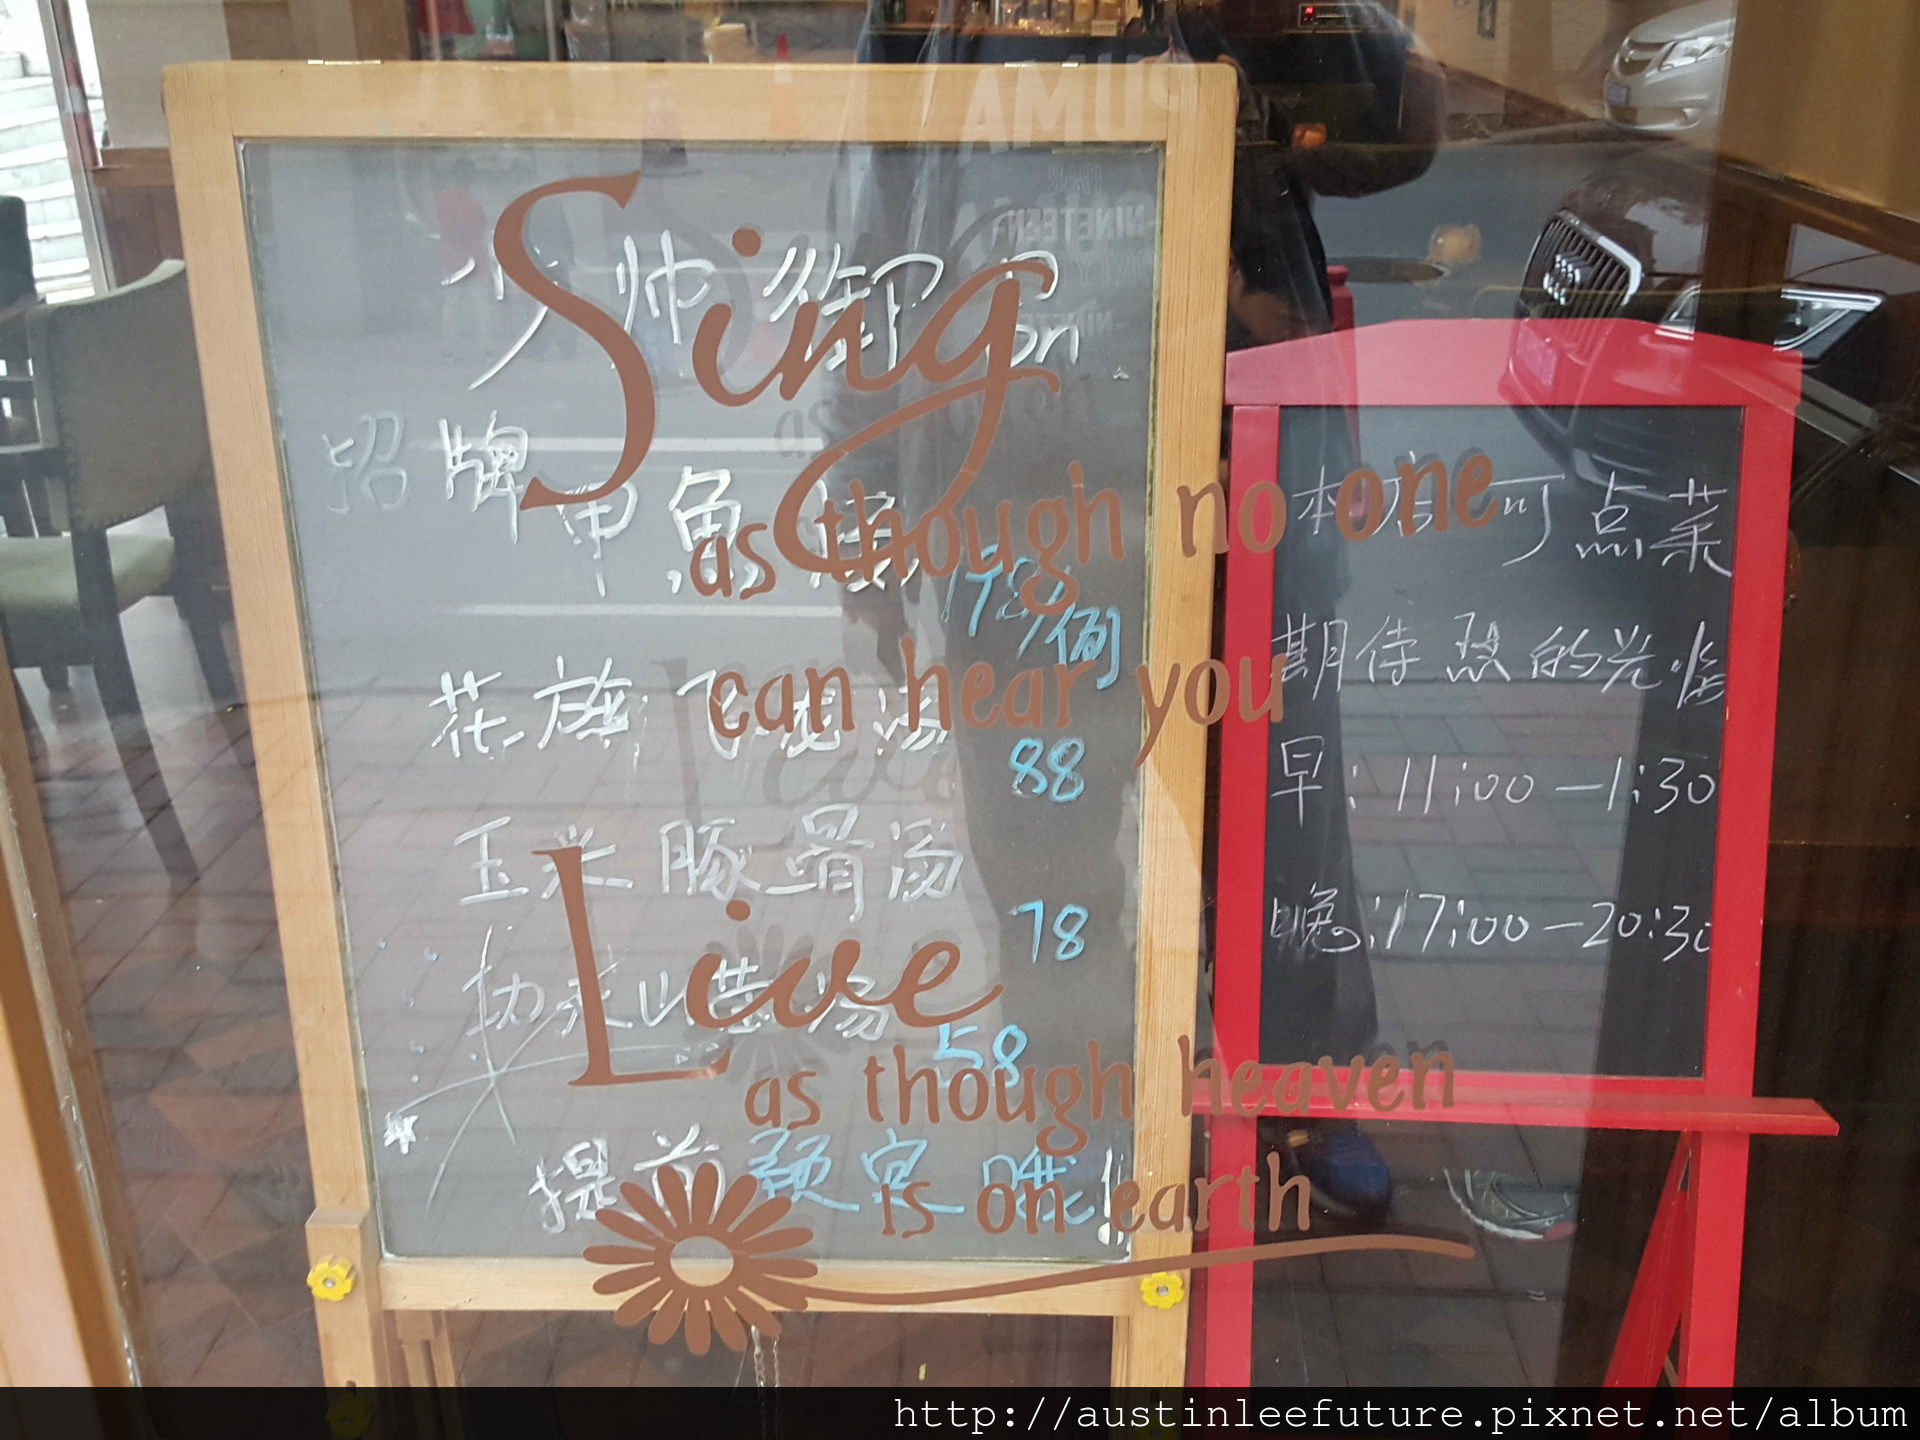 Sing
as though no one
can hear you
Live
as though heaven
is on earth
少帅御品
招牌甲鱼
198/例
花旗 汤
88
玉米豚骨汤
78
汤
58
提前预定哦!
本店可点菜
期待您的光临
早:11:00-1:30
晚:17:00-20:30
PUMA
NINETEEN
http://austinleefuture.pixnet.net/album